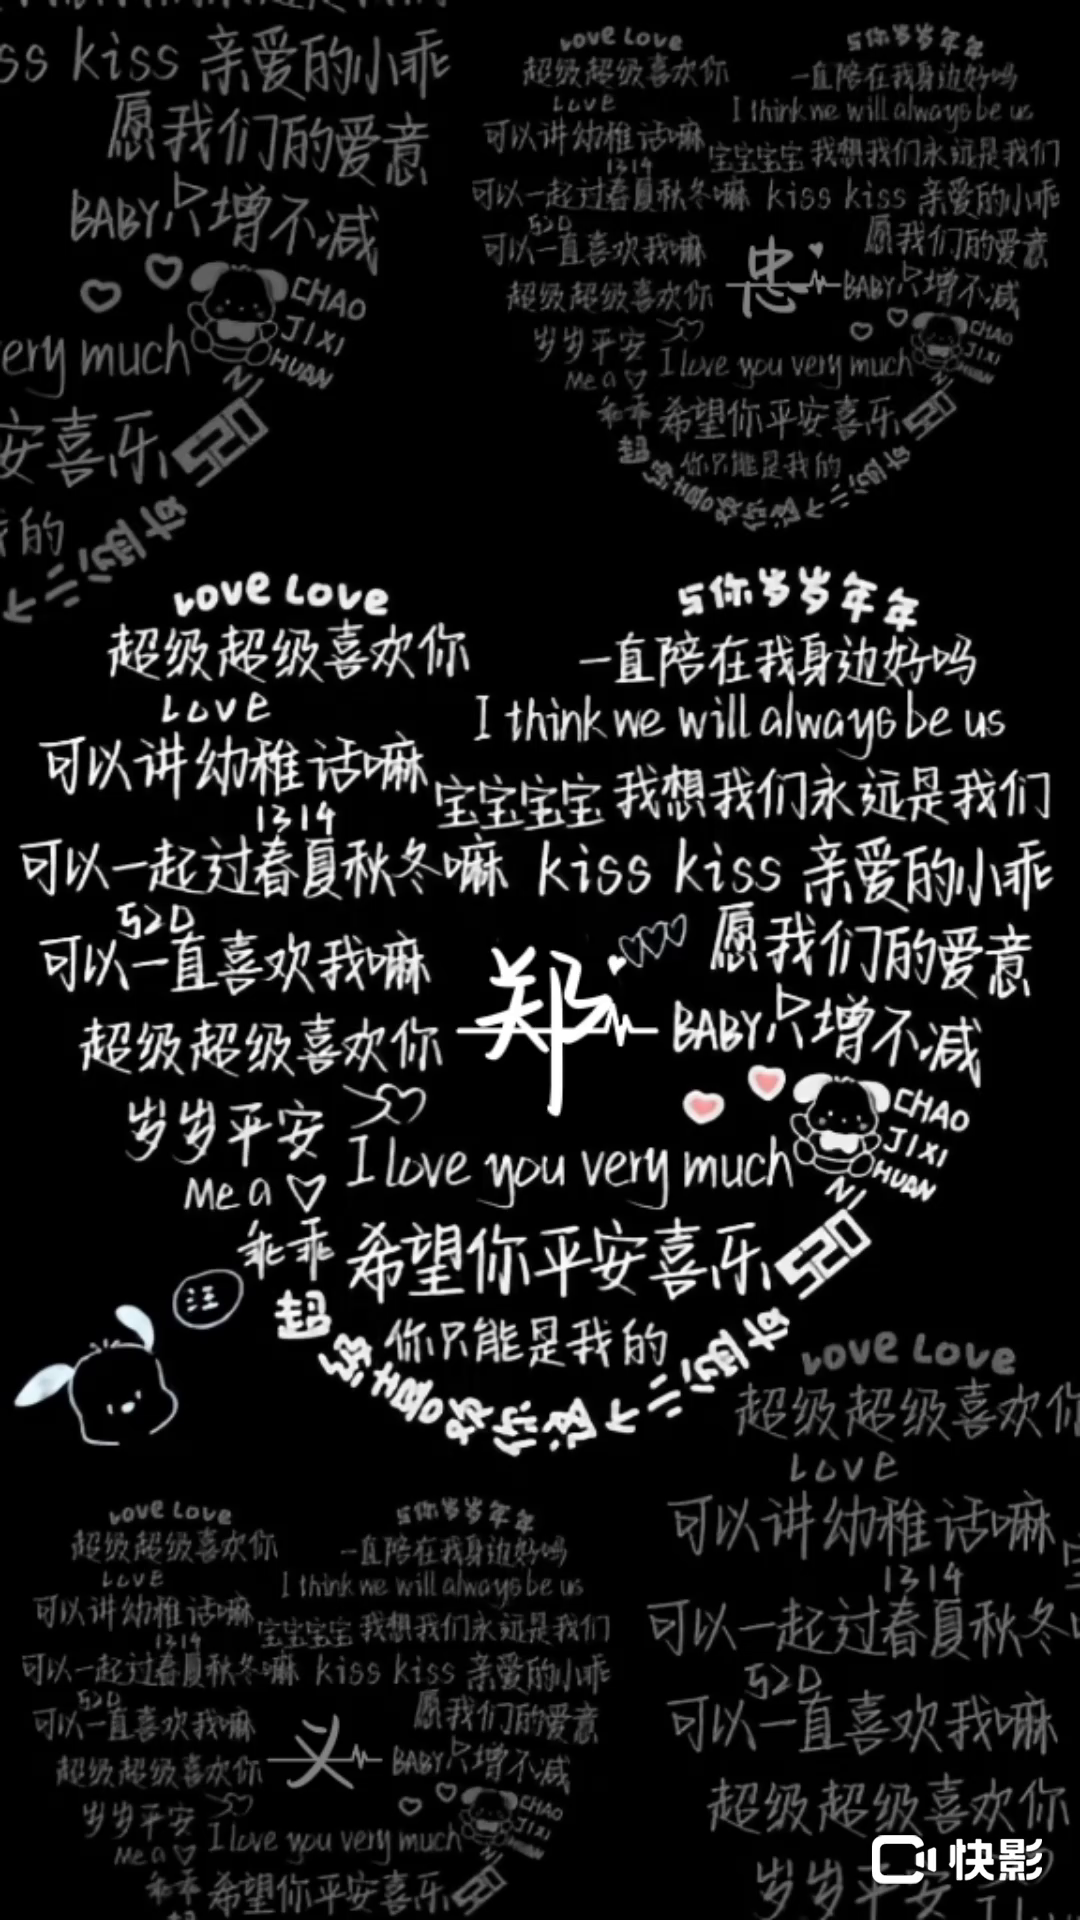 ss kiss 亲爱的小乖
愿我们的爱意
BABY只增不减
CHAO
JIXI
HUAN
NI
very much
安喜乐
520
我的
Love Love
与你岁岁年年
超级超级喜欢你
一直陪在我身边好吗
LOVE
I think we will always be us
可以讲幼稚话嘛
宝宝宝宝 我想我们永远是我们
1314
可以一起过春夏秋冬嘛 kiss kiss 亲爱的小乖
520
愿我们的爱意
可以一直喜欢我嘛
忠
BABY只增不减
超级超级喜欢你
岁岁平安
CHAO
JIXI
HUAN
NI
I love you very much
Me a
乖乖 希望你平安喜乐
520
你只能是我的
Love Love
与你岁岁年年
超级超级喜欢你
一直陪在我身边好吗
LOVE
I think we will always be us
可以讲幼稚话嘛
宝宝宝宝 我想我们永远是我们
1314
可以一起过春夏秋冬嘛 kiss kiss 亲爱的小乖
520
愿我们的爱意
可以一直喜欢我嘛
郑
BABY只增不减
超级超级喜欢你
岁岁平安
CHAO
JIXI
HUAN
NI
I love you very much
Me a
乖乖 希望你平安喜乐
520
汪
你只能是我的
Love Love
超级超级喜欢你
LOVE
可以讲幼稚话嘛
1314
可以一起过春夏秋冬
520
可以一直喜欢我嘛
超级超级喜欢你
岁岁平安
Love Love
与你岁岁年年
超级超级喜欢你
一直陪在我身边好吗
LOVE
I think we will always be us
可以讲幼稚话嘛
宝宝宝宝 我想我们永远是我们
1314
可以一起过春夏秋冬嘛 kiss kiss 亲爱的小乖
520
愿我们的爱意
可以一直喜欢我嘛
义
BABY只增不减
超级超级喜欢你
岁岁平安
CHAO
JIXI
HUAN
NI
I love you very much
Me a
乖乖 希望你平安喜乐
快影